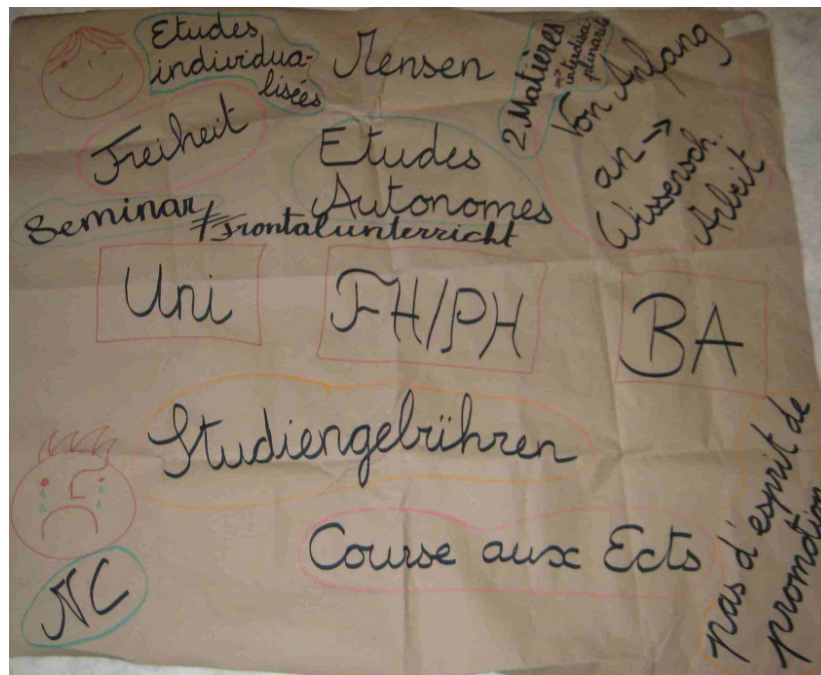 Etudes
individua-
lisées
Mensen
2 Matières
=> interdisci-
plinarité
Von Anfang
an →
Wissensch.
Arbeit
Freiheit
Etudes
Autonomes
Seminar ≠ Frontalunterricht
Uni
FH/PH
BA
Studiengebrühren
Course aux Ects
pas d'esprit de
promotion
NC